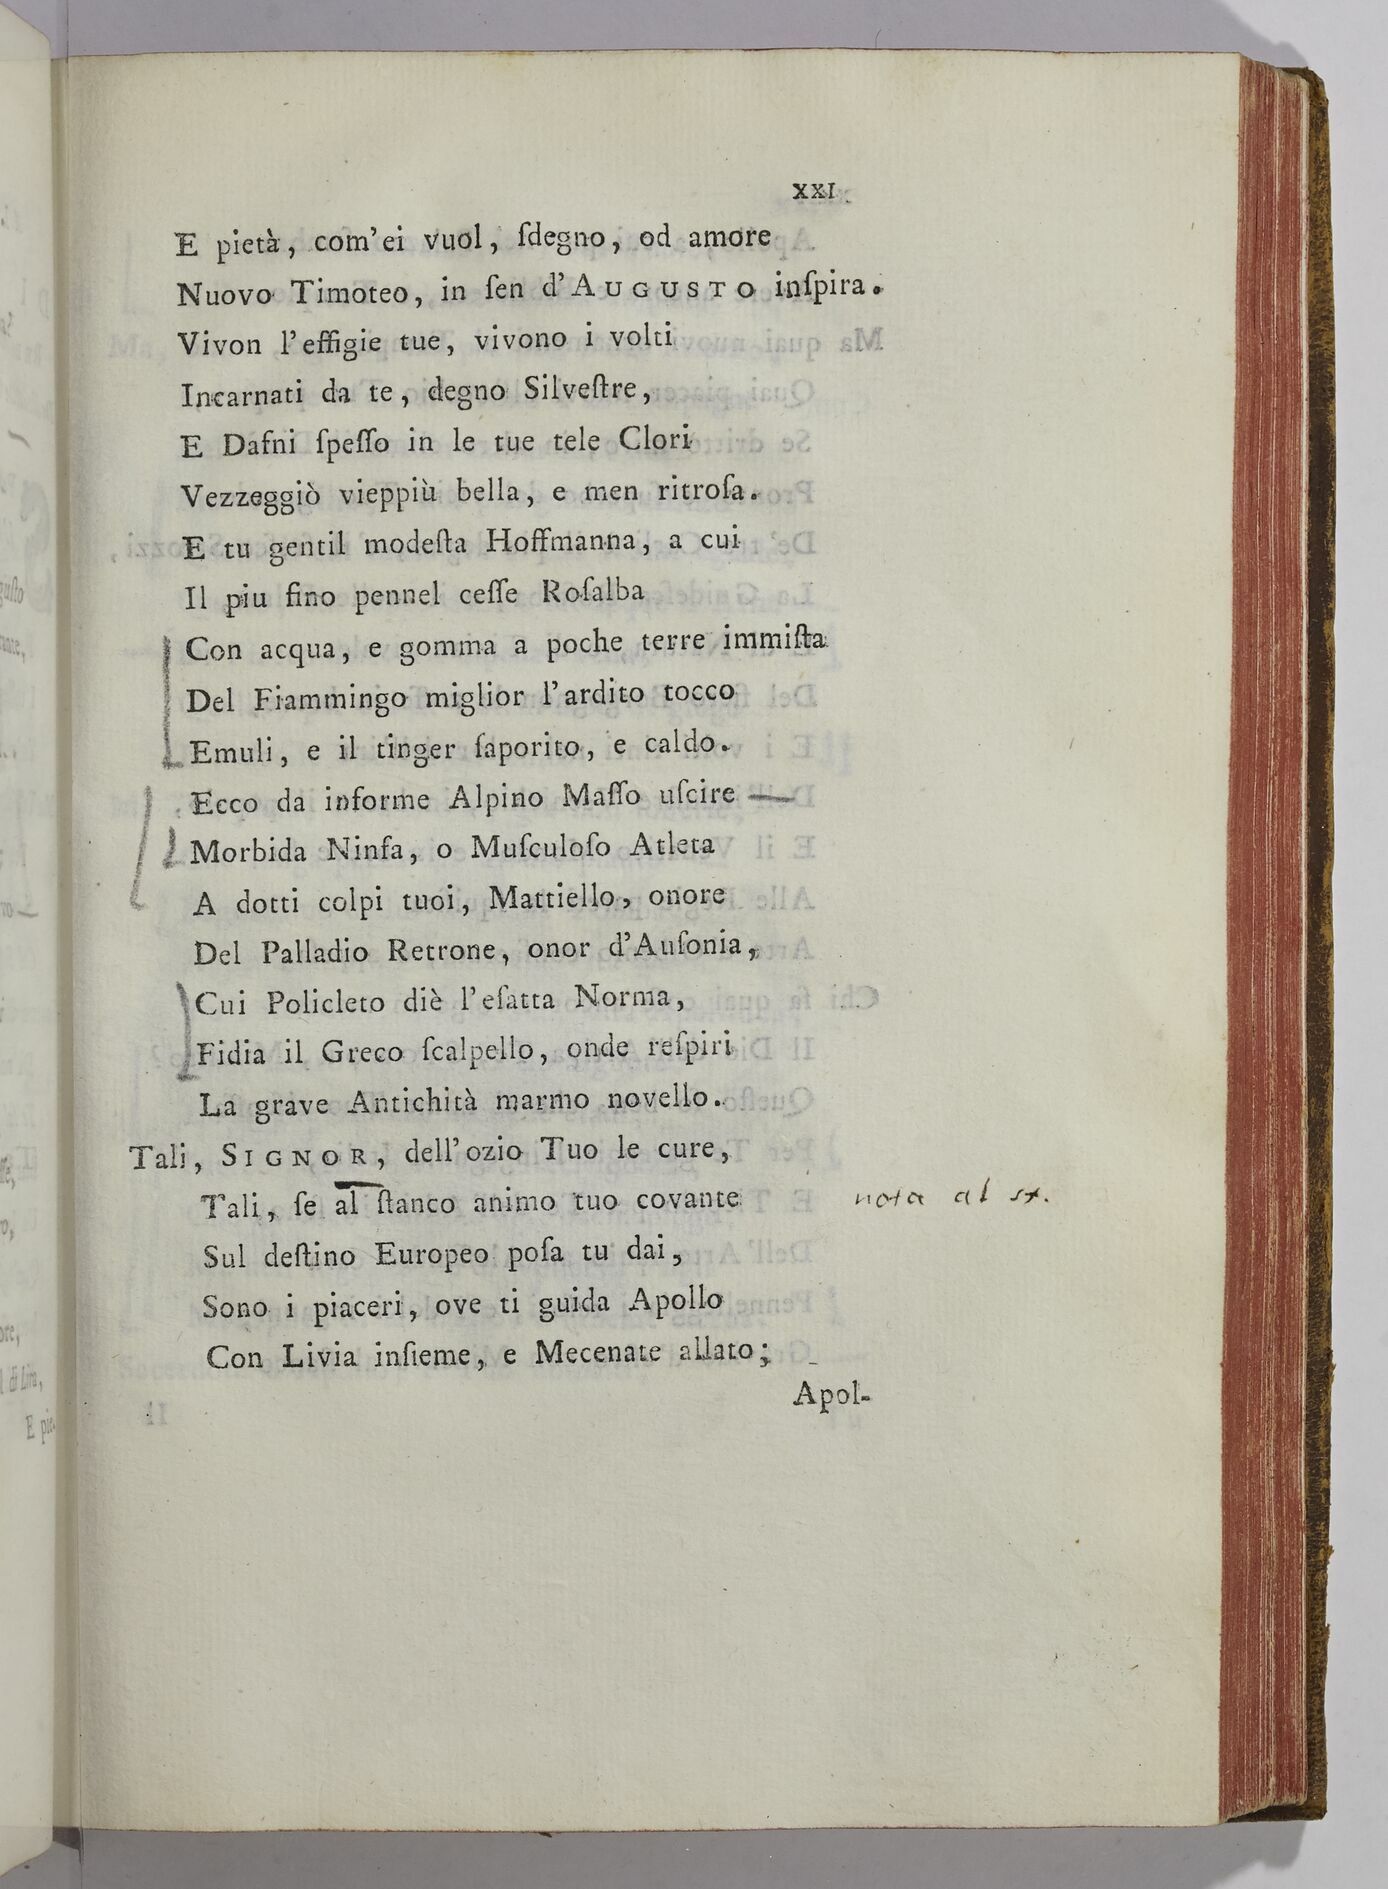 XXI
E pietà, com'ei vuol, ſdegno, od amore
Nuovo Timoteo, in ſen d'AUGUSTO inſpira.
Vivon l'effigie tue, vivono i volti
Incarnati da te, degno Silveſtre,
E Dafni ſpeſſo in le tue tele Clori
Vezzeggiò vieppiù bella, e men ritroſa.
E tu gentil modeſta Hoffmanna, a cui
Il piu fino pennel ceſſe Roſalba
Con acqua, e gomma a poche terre immiſta
Del Fiammingo miglior l'ardito tocco
Emuli, e il tinger ſaporito, e caldo.
Ecco da informe Alpino Maſſo uſcire
Morbida Ninfa, o Muſculoſo Atleta
A dotti colpi tuoi, Mattiello, onore
Del Palladio Retrone, onor d'Auſonia,
Cui Policleto diè l'eſatta Norma,
Fidia il Greco ſcalpello, onde reſpiri
La grave Antichità marmo novello.
Tali, SIGNOR, dell'ozio Tuo le cure,
Tali, ſe al ſtanco animo tuo covante nota al st.
Sul deſtino Europeo poſa tu dai,
Sono i piaceri, ove ti guida Apollo
Con Livia inſieme, e Mecenate allato;
Apol-